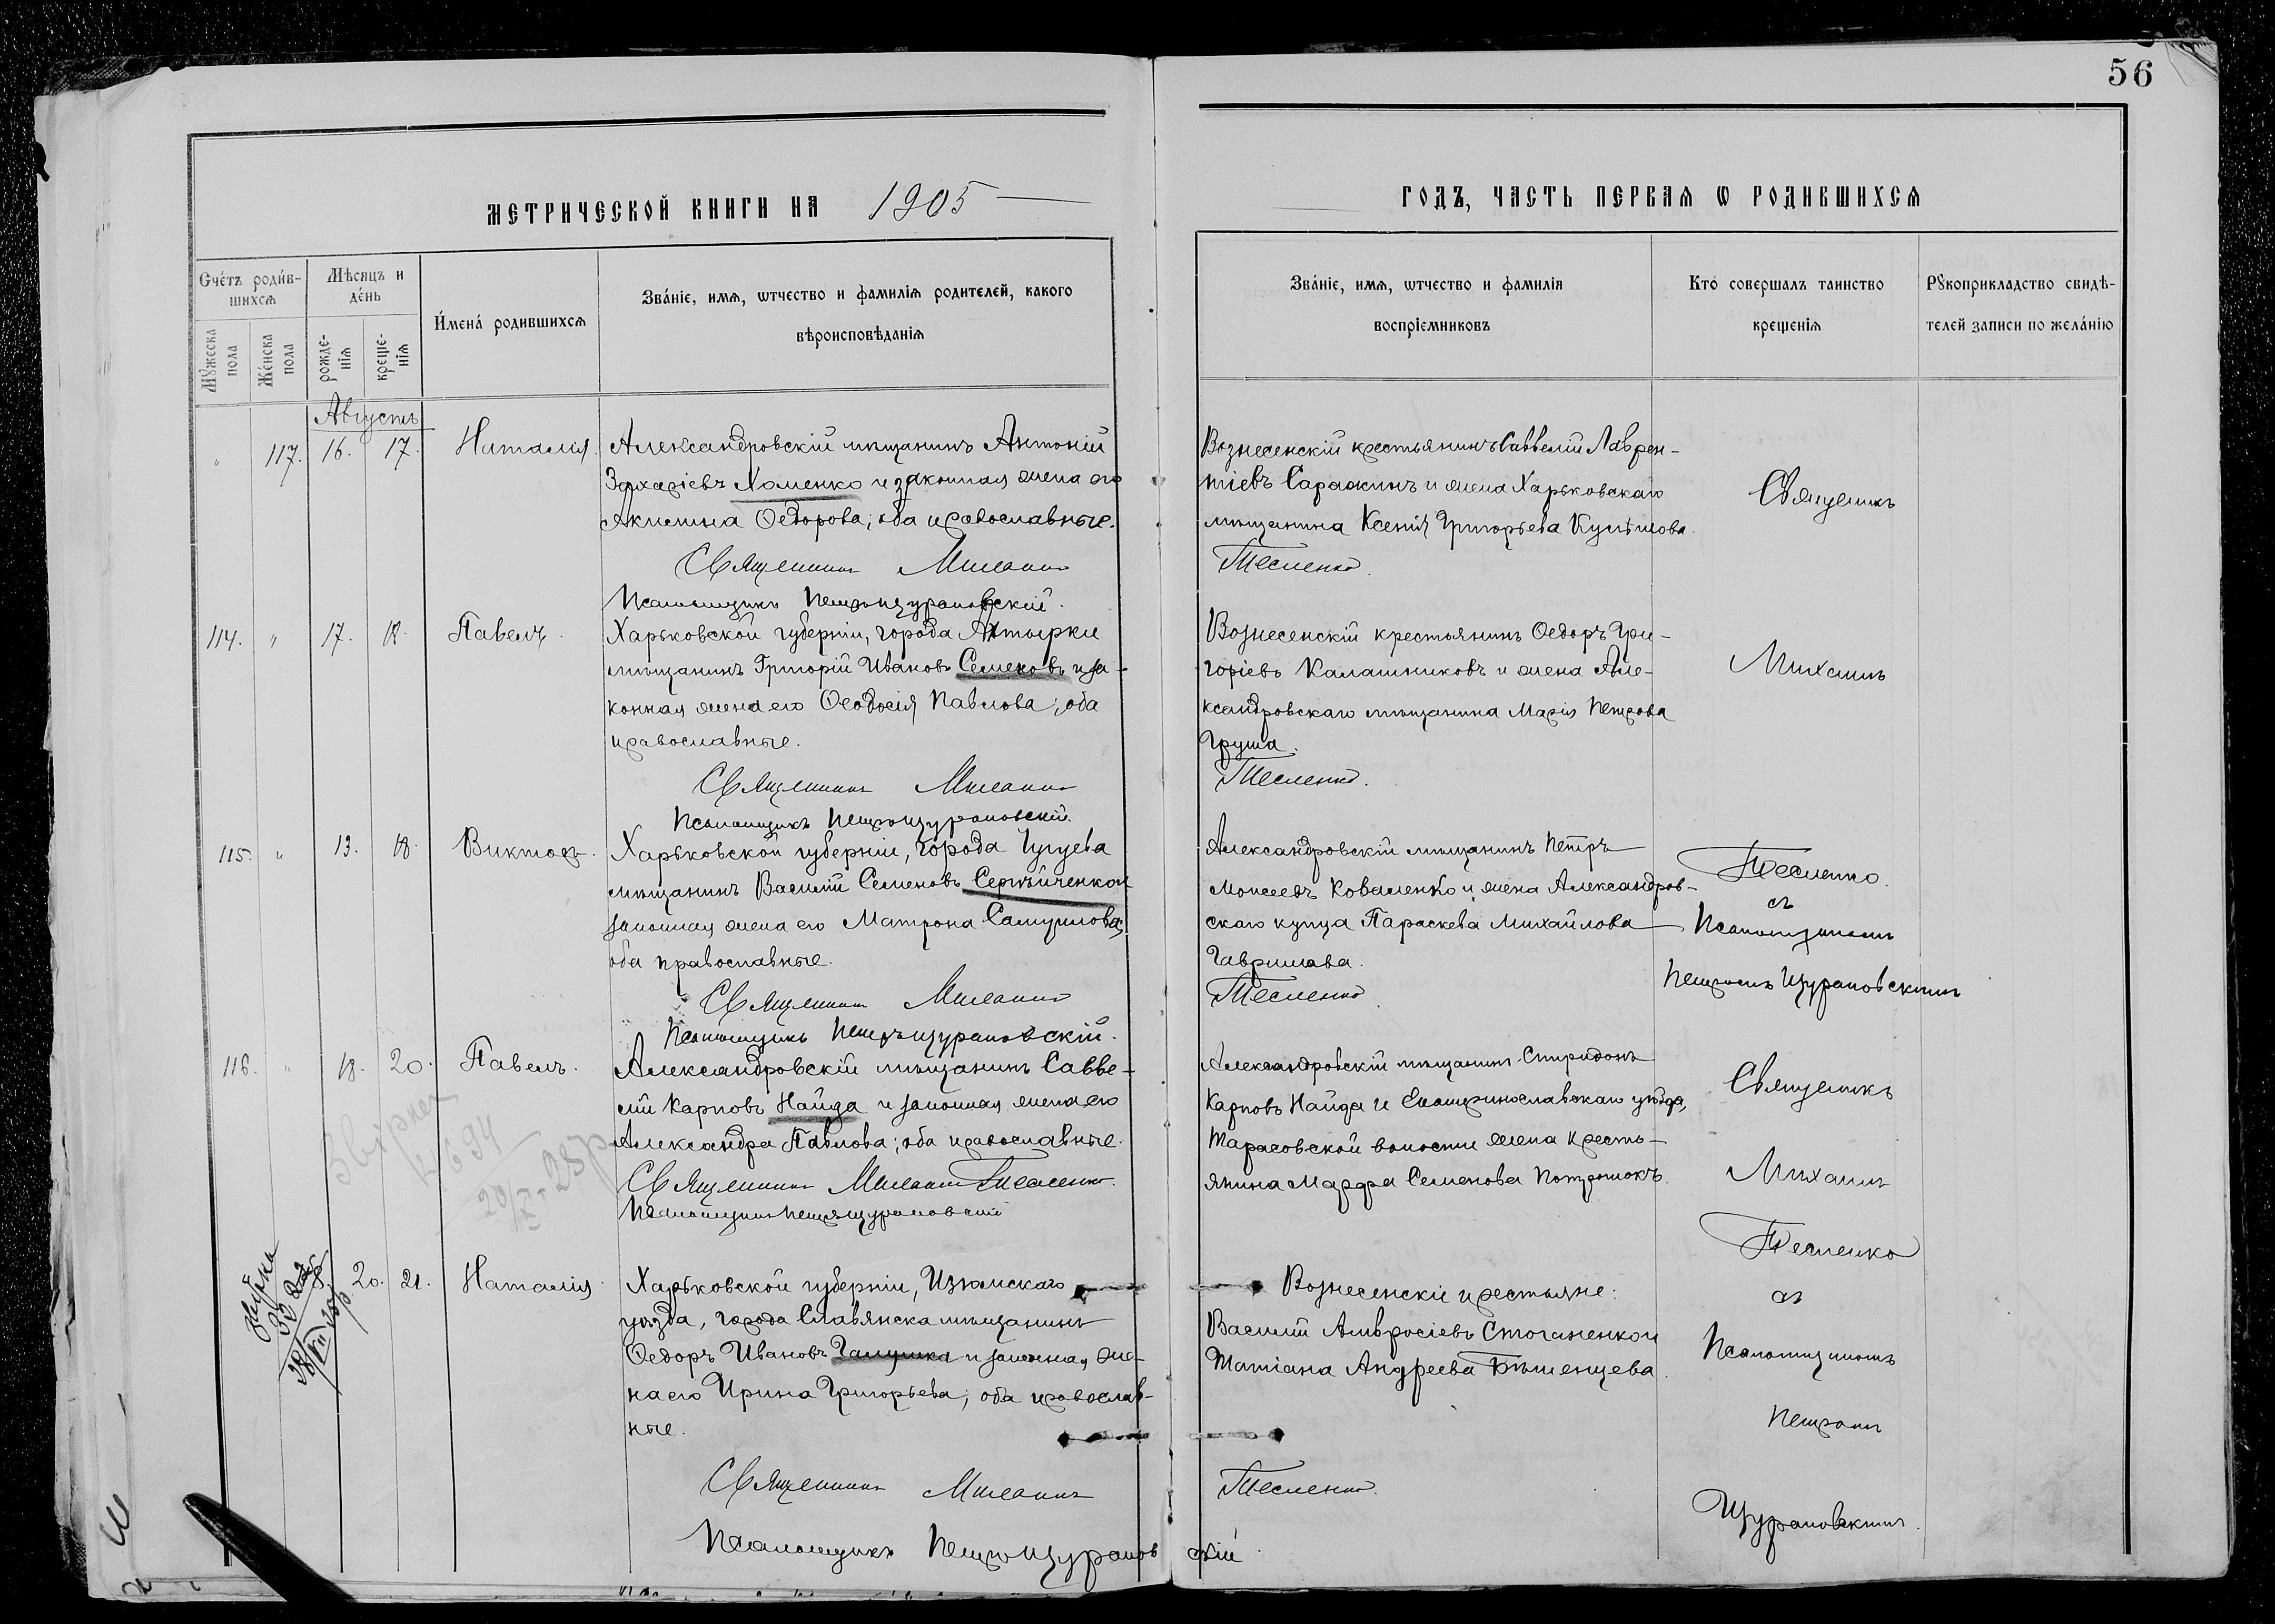 56
МЕТРИЧЕСКОЙ КНИГИ НА 1905
ГОДЪ, ЧАСТЬ ПЕРВАЯ Ѡ РОДИВШИХСЯ
Счéтъ роди́в-
шихся
Мꙋжеска пола
Жéнска пола
Мѣсяцъ и
дéнь
рожде-
нія
креще-
нія
И́менá родившихся
Звáніе, имя, ѡтчество и фамилія родителей, какого
вѣроисповѣданія
Звáніе, имя, ѡтчество и фамилія
воспріемниковъ
Ктó совершалъ таинство
крещенія
Рꙋкоприкладство свидѣ-
телей записи по желáнію
Августъ
" 117. 16. 17. Наталія.
Александровскій мѣщанинъ Антоній
Захаріевъ Хоменко и законная жена его
Акилина Ѳедорова; оба православные.
Священникъ Михаилъ
Псаломщикъ Петръ Щурановскій.
Вознесенскій крестьянинъ Савелій Лаврен-
тіевъ Саражинъ и жена Харьковскаго
мѣщанина Ксенія Григорьева
Тесленко.
114. " 17. 18. Павелъ.
Харьковской губерніи, города Ахтырки
мѣщанинъ Григорій Ивановъ Семеновъ и за-
конная жена его Ѳеодосія Павлова; оба
православные.
Священникъ Михаилъ
Псаломщикъ Петръ Щурановскій.
Вознесенскій крестьянинъ Ѳедоръ Гри-
горіевъ Калашниковъ и жена Але-
ксандровскаго мѣщанина Марія Петрова
Груша.
Тесленко.
115. " 13. 18. Викторъ.
Харьковской губерніи, города Чугуева
мѣщанинъ Василій Семеновъ Сергѣйченко и
законная жена его Матрона Самуилова;
оба православные.
Священникъ Михаилъ
Псаломщикъ Петръ Щурановскій.
Александровскій мѣщанинъ Петръ
Моисеевъ Коваленко и жена Александров-
скаго купца Параскева Михайлова
Гаврилова.
Тесленко.
116. " 18. 20. Павелъ.
Александровскій мѣщанинъ Савве-
лій Карповъ Найда и законная жена его
Александра Павлова; оба православные.
Священникъ Михаилъ Тесленко.
Псаломщикъ Петръ Щурановскій
Александровскій мѣщанинъ Спиридонъ
Карповъ Найда и Екатеринославскаго уѣзда,
Тарасовской волости жена кресть-
янина Марѳа Семенова
20. 21. Наталія.
Харьковской губерніи, Изюмскаго
уѣзда, города Славянска мѣщанинъ
Ѳедоръ Ивановъ Галушка и законная же-
на его Ирина Григорьева; оба православ-
ные.
Священникъ Михаилъ
Тесленко.
Псаломщикъ Петръ Щурановскій.
Вознесенскіе крестьяне:
Василій Амвросіевъ Стоганенко и
Татіана Андреева
Священникъ
Михаилъ
Тесленко.
съ
Псаломщикомъ
Петромъ Щурановскимъ
Священникъ
Михаилъ
Тесленко
съ
Псаломщикомъ
Петромъ
Щурановскимъ.